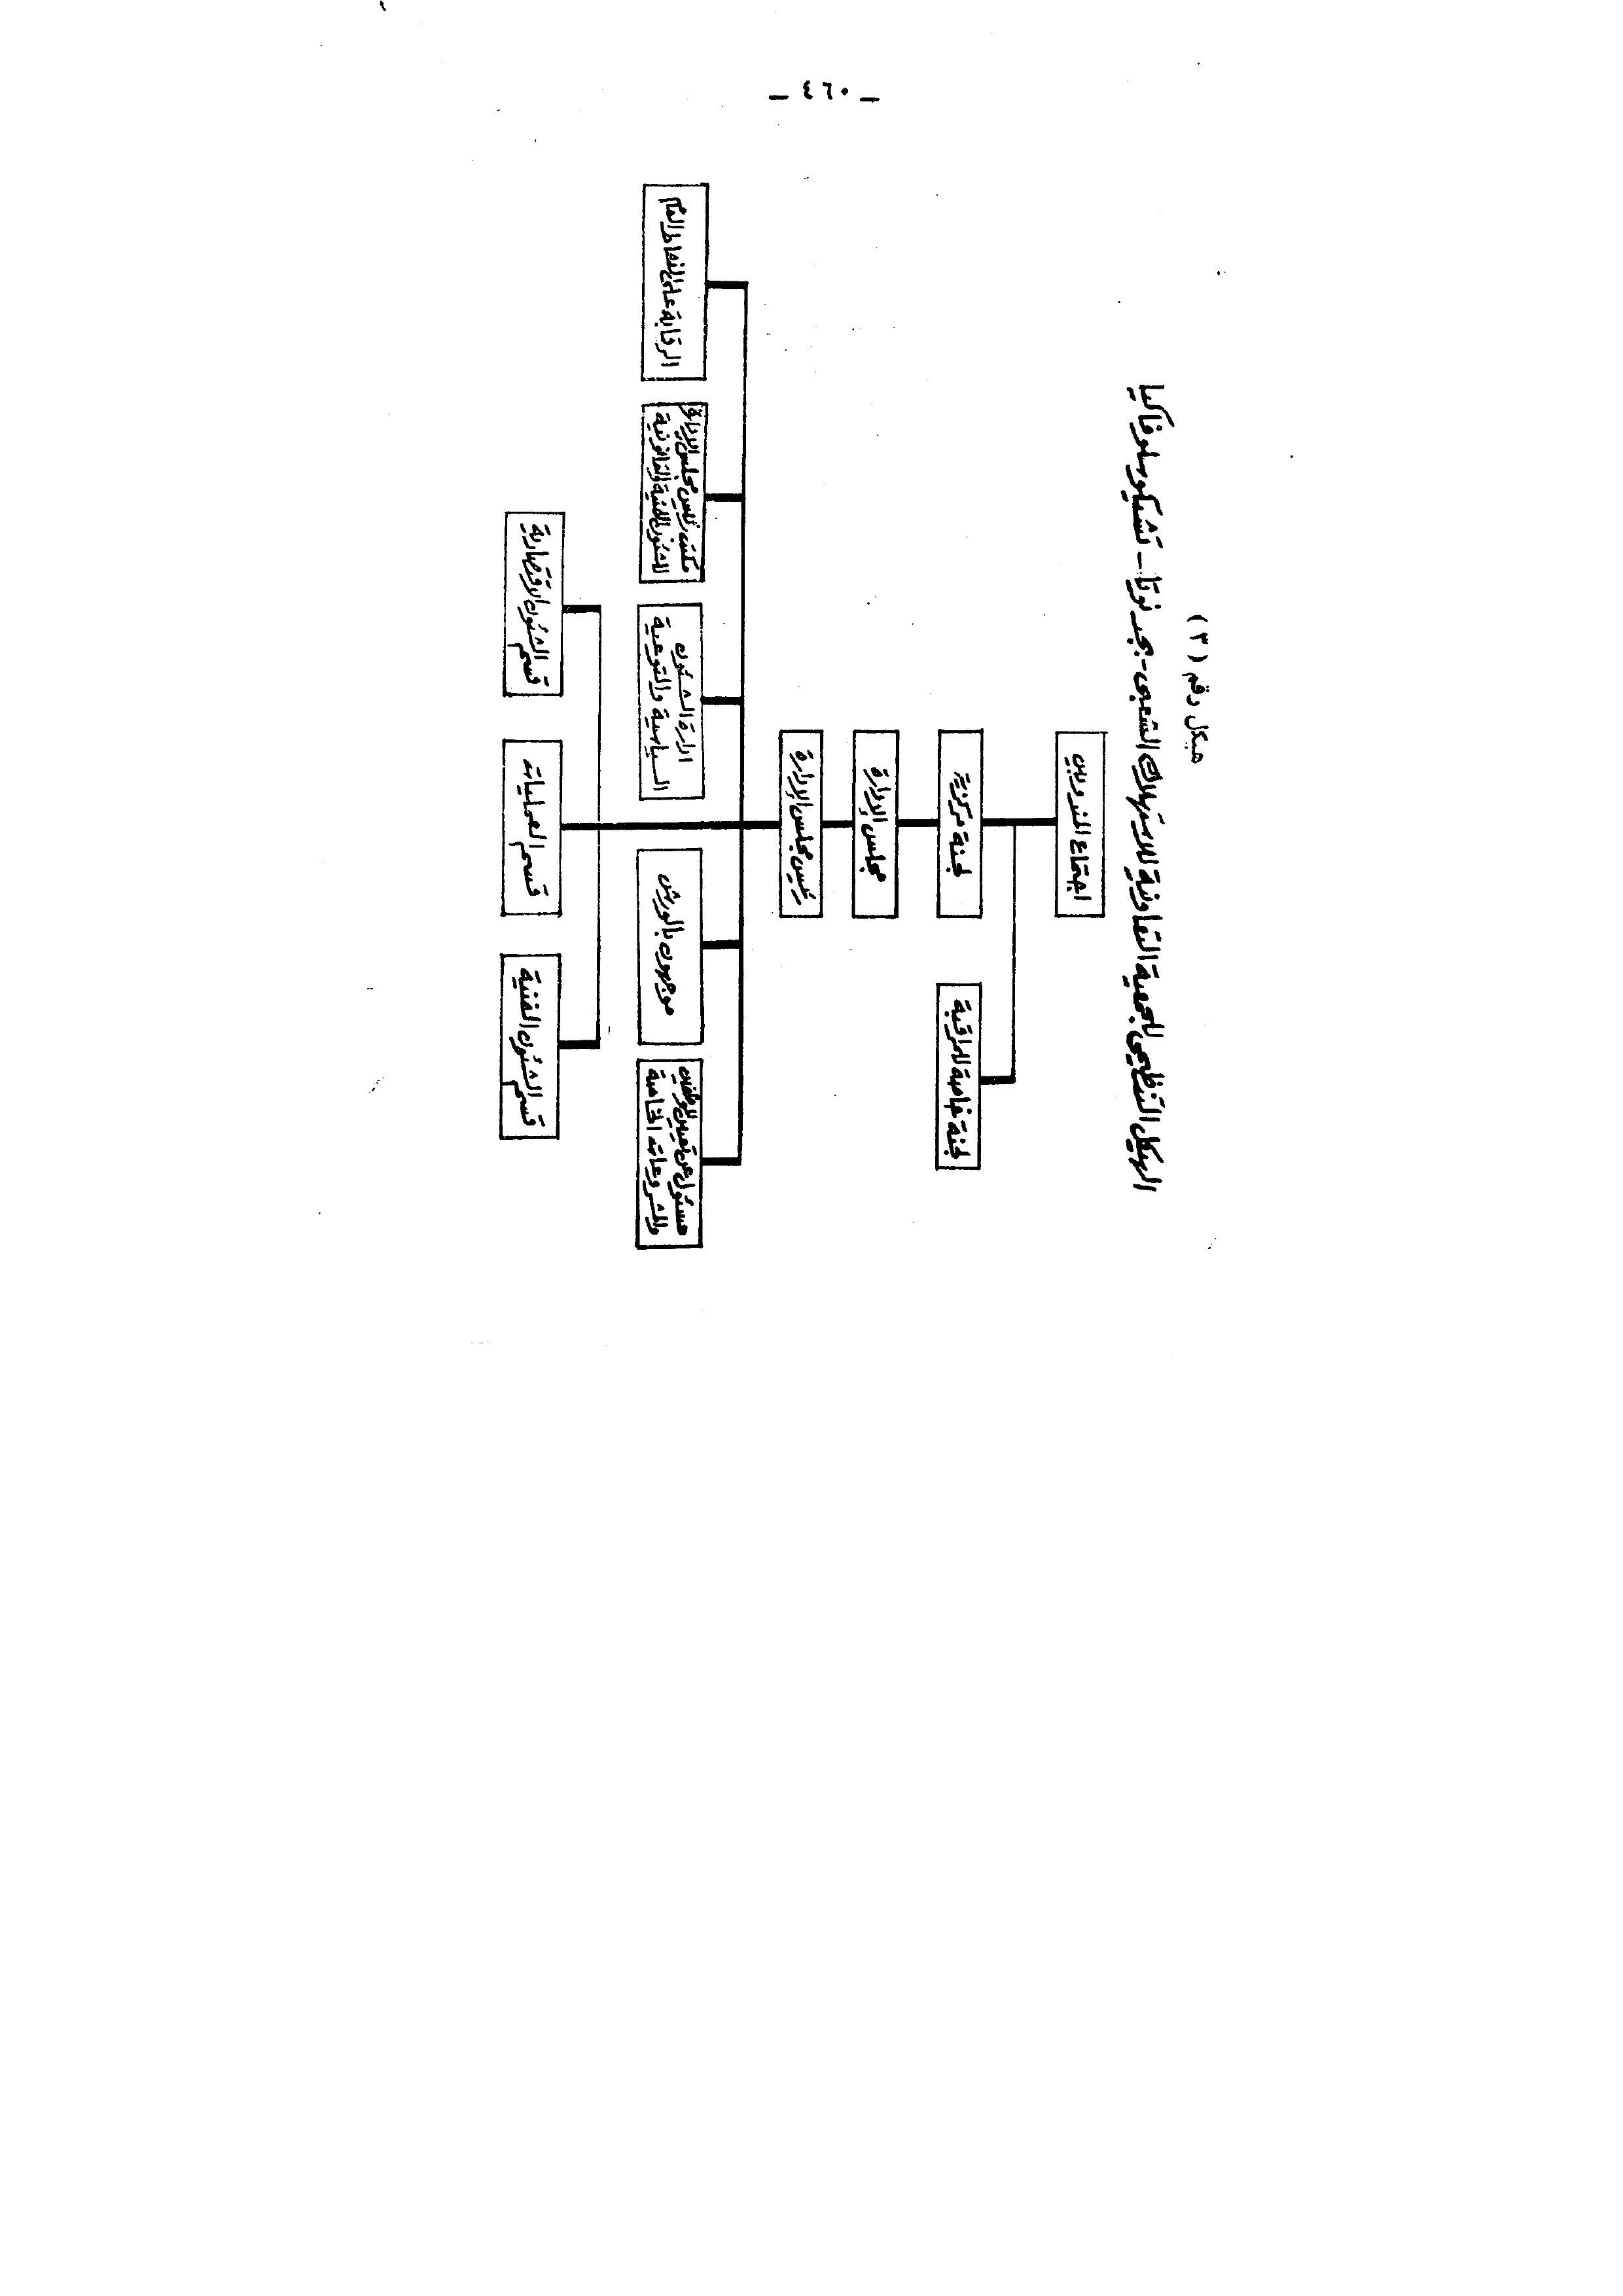 ـ ٤٦٠ ـ
هيكل رقم (٣)
الهيكل التنظيمى للجمعية التعاونية للاستهلاك الشعبى - يدنوتا - تشيكوسلوفاكيا
اجتماع المندوبين
لجنة مركزية
لجنة خاصة للمراقبة
مجلس الإدارة
رئيس مجلس الإدارة
مسئول عن تعيين الموظفين
والمشروعات الخاصة
موجهون بالورش
ادارة الشئون
السياسية والتوعية
مكتب رئيس مجلس الإدارة
للشئون الفنية والقانونية
الرقابة على النشاط العام
قسم الشئون الفنية
قسم العمليات
قسم الشئون الاقتصادية